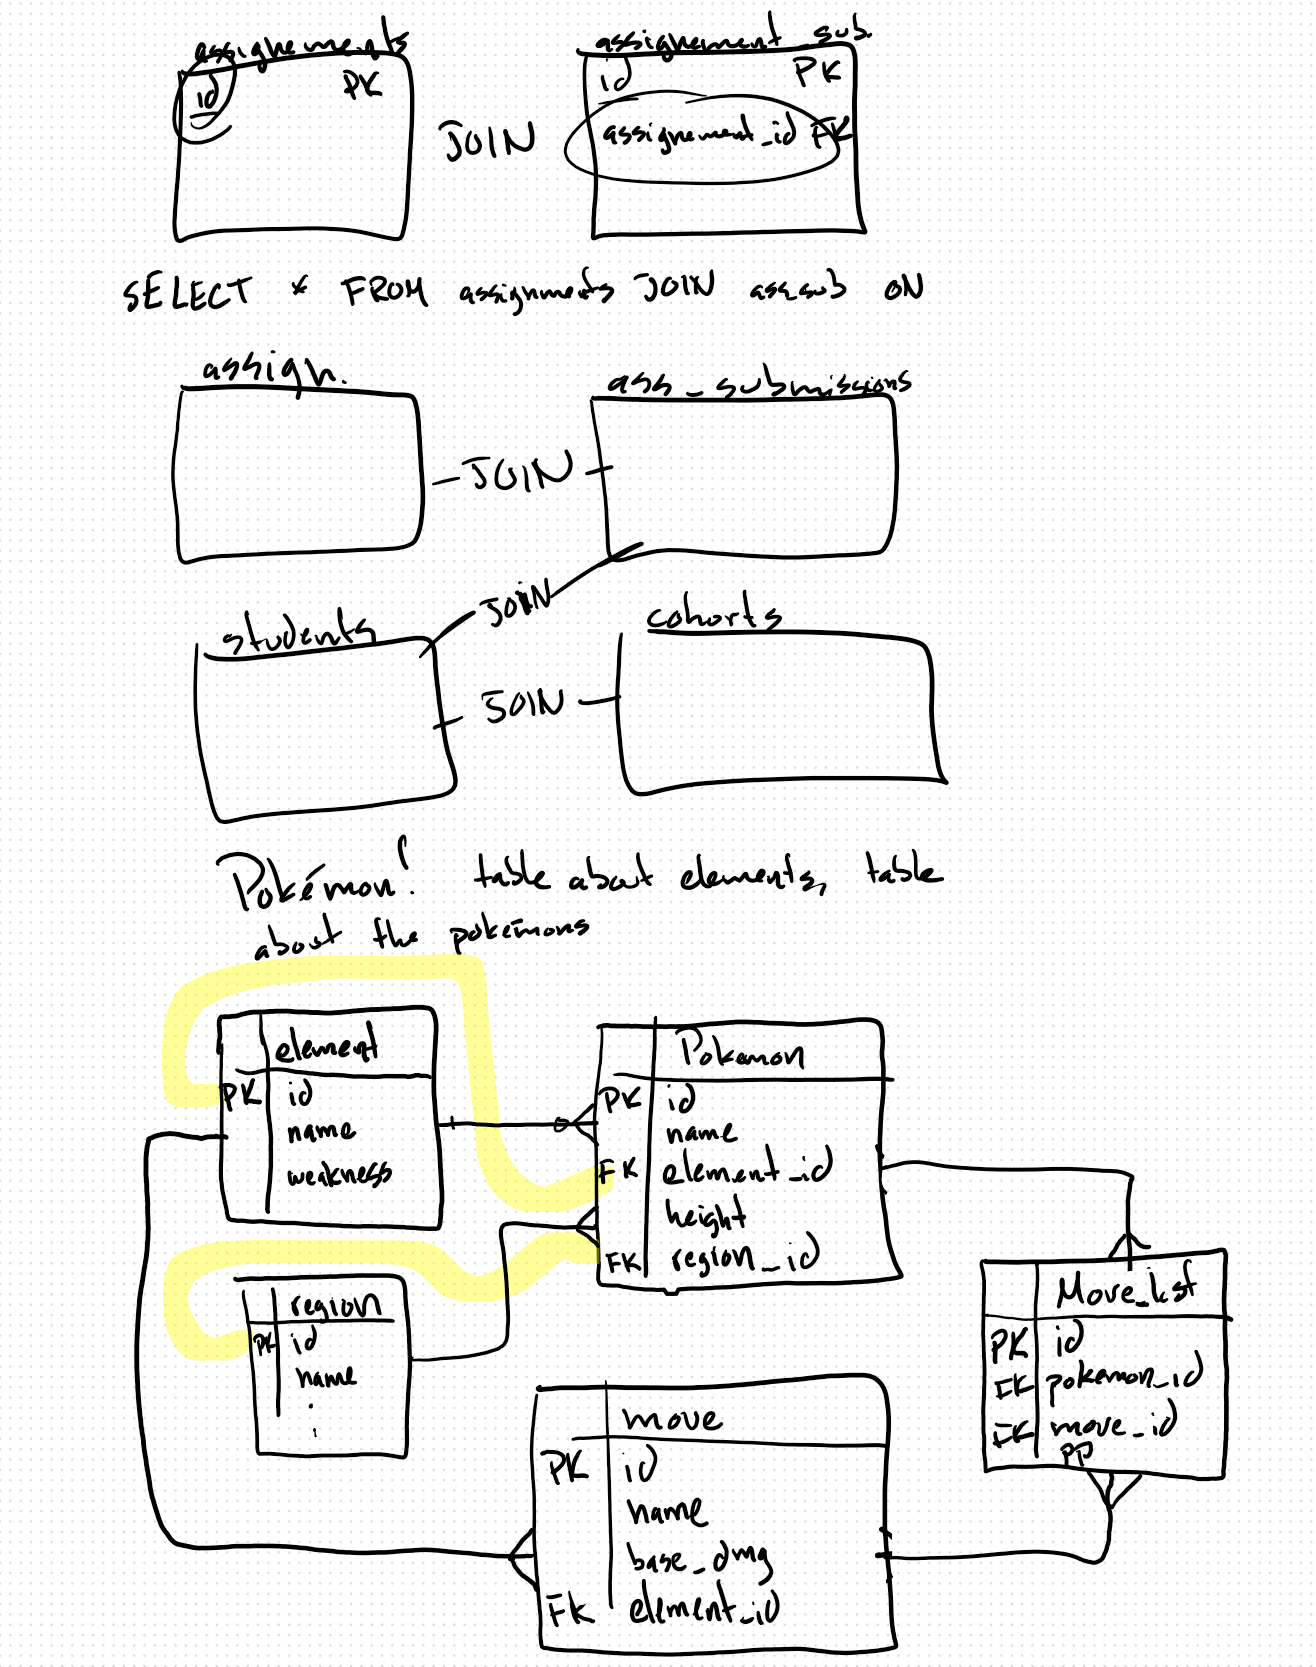 assignements
id PK
JOIN
assignement_sub
id PK
assignement_id FK
SELECT * FROM assignments JOIN ass_sub ON
assign.
JOIN
ass_submissions
JOIN
students
JOIN
cohorts
Pokémon! table about elements, table
about the pokémons
element
PK id
name
weakness
Pokemon
PK id
name
FK element_id
height
FK region_id
region
PK id
name
.
.
Move_list
PK id
FK pokemon_id
FK move_id
PP
move
PK id
name
base_dmg
FK element_id